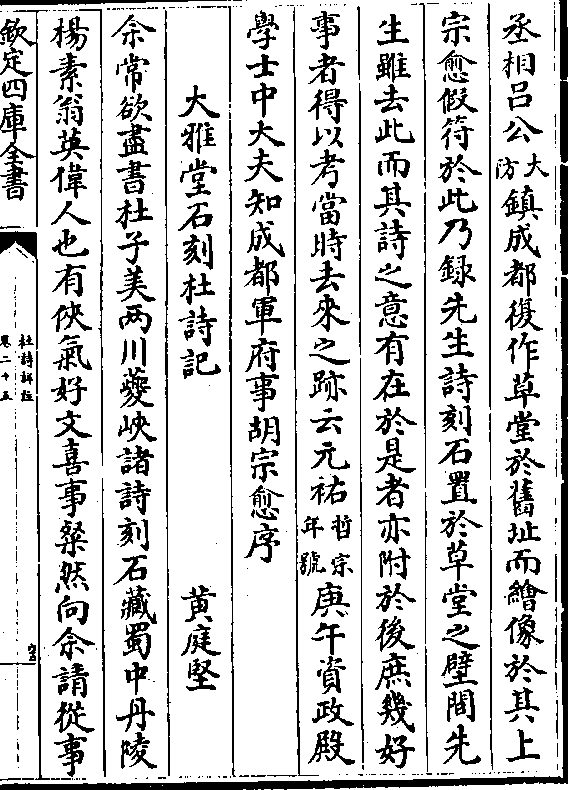 丞相吕公大防鎮成都復作草堂於舊址而繪像於其上
宗愈假符於此乃録先生詩刻石置於草堂之壁間先
生雖去此而其詩之意有在於是者亦附於後庶幾好
事者得以考當時去來之跡云元祐哲宗年號庚午資政殿
學士中大夫知成都軍府事胡宗愈序
大雅堂石刻杜詩記 黄庭堅
余常欲盡書杜子美两川夔峽諸詩刻石藏蜀中丹陵
楊素翁英偉人也有俠氣好文喜事粲然向余請從事
欽定四庫全書
杜詩詳註
卷二十五